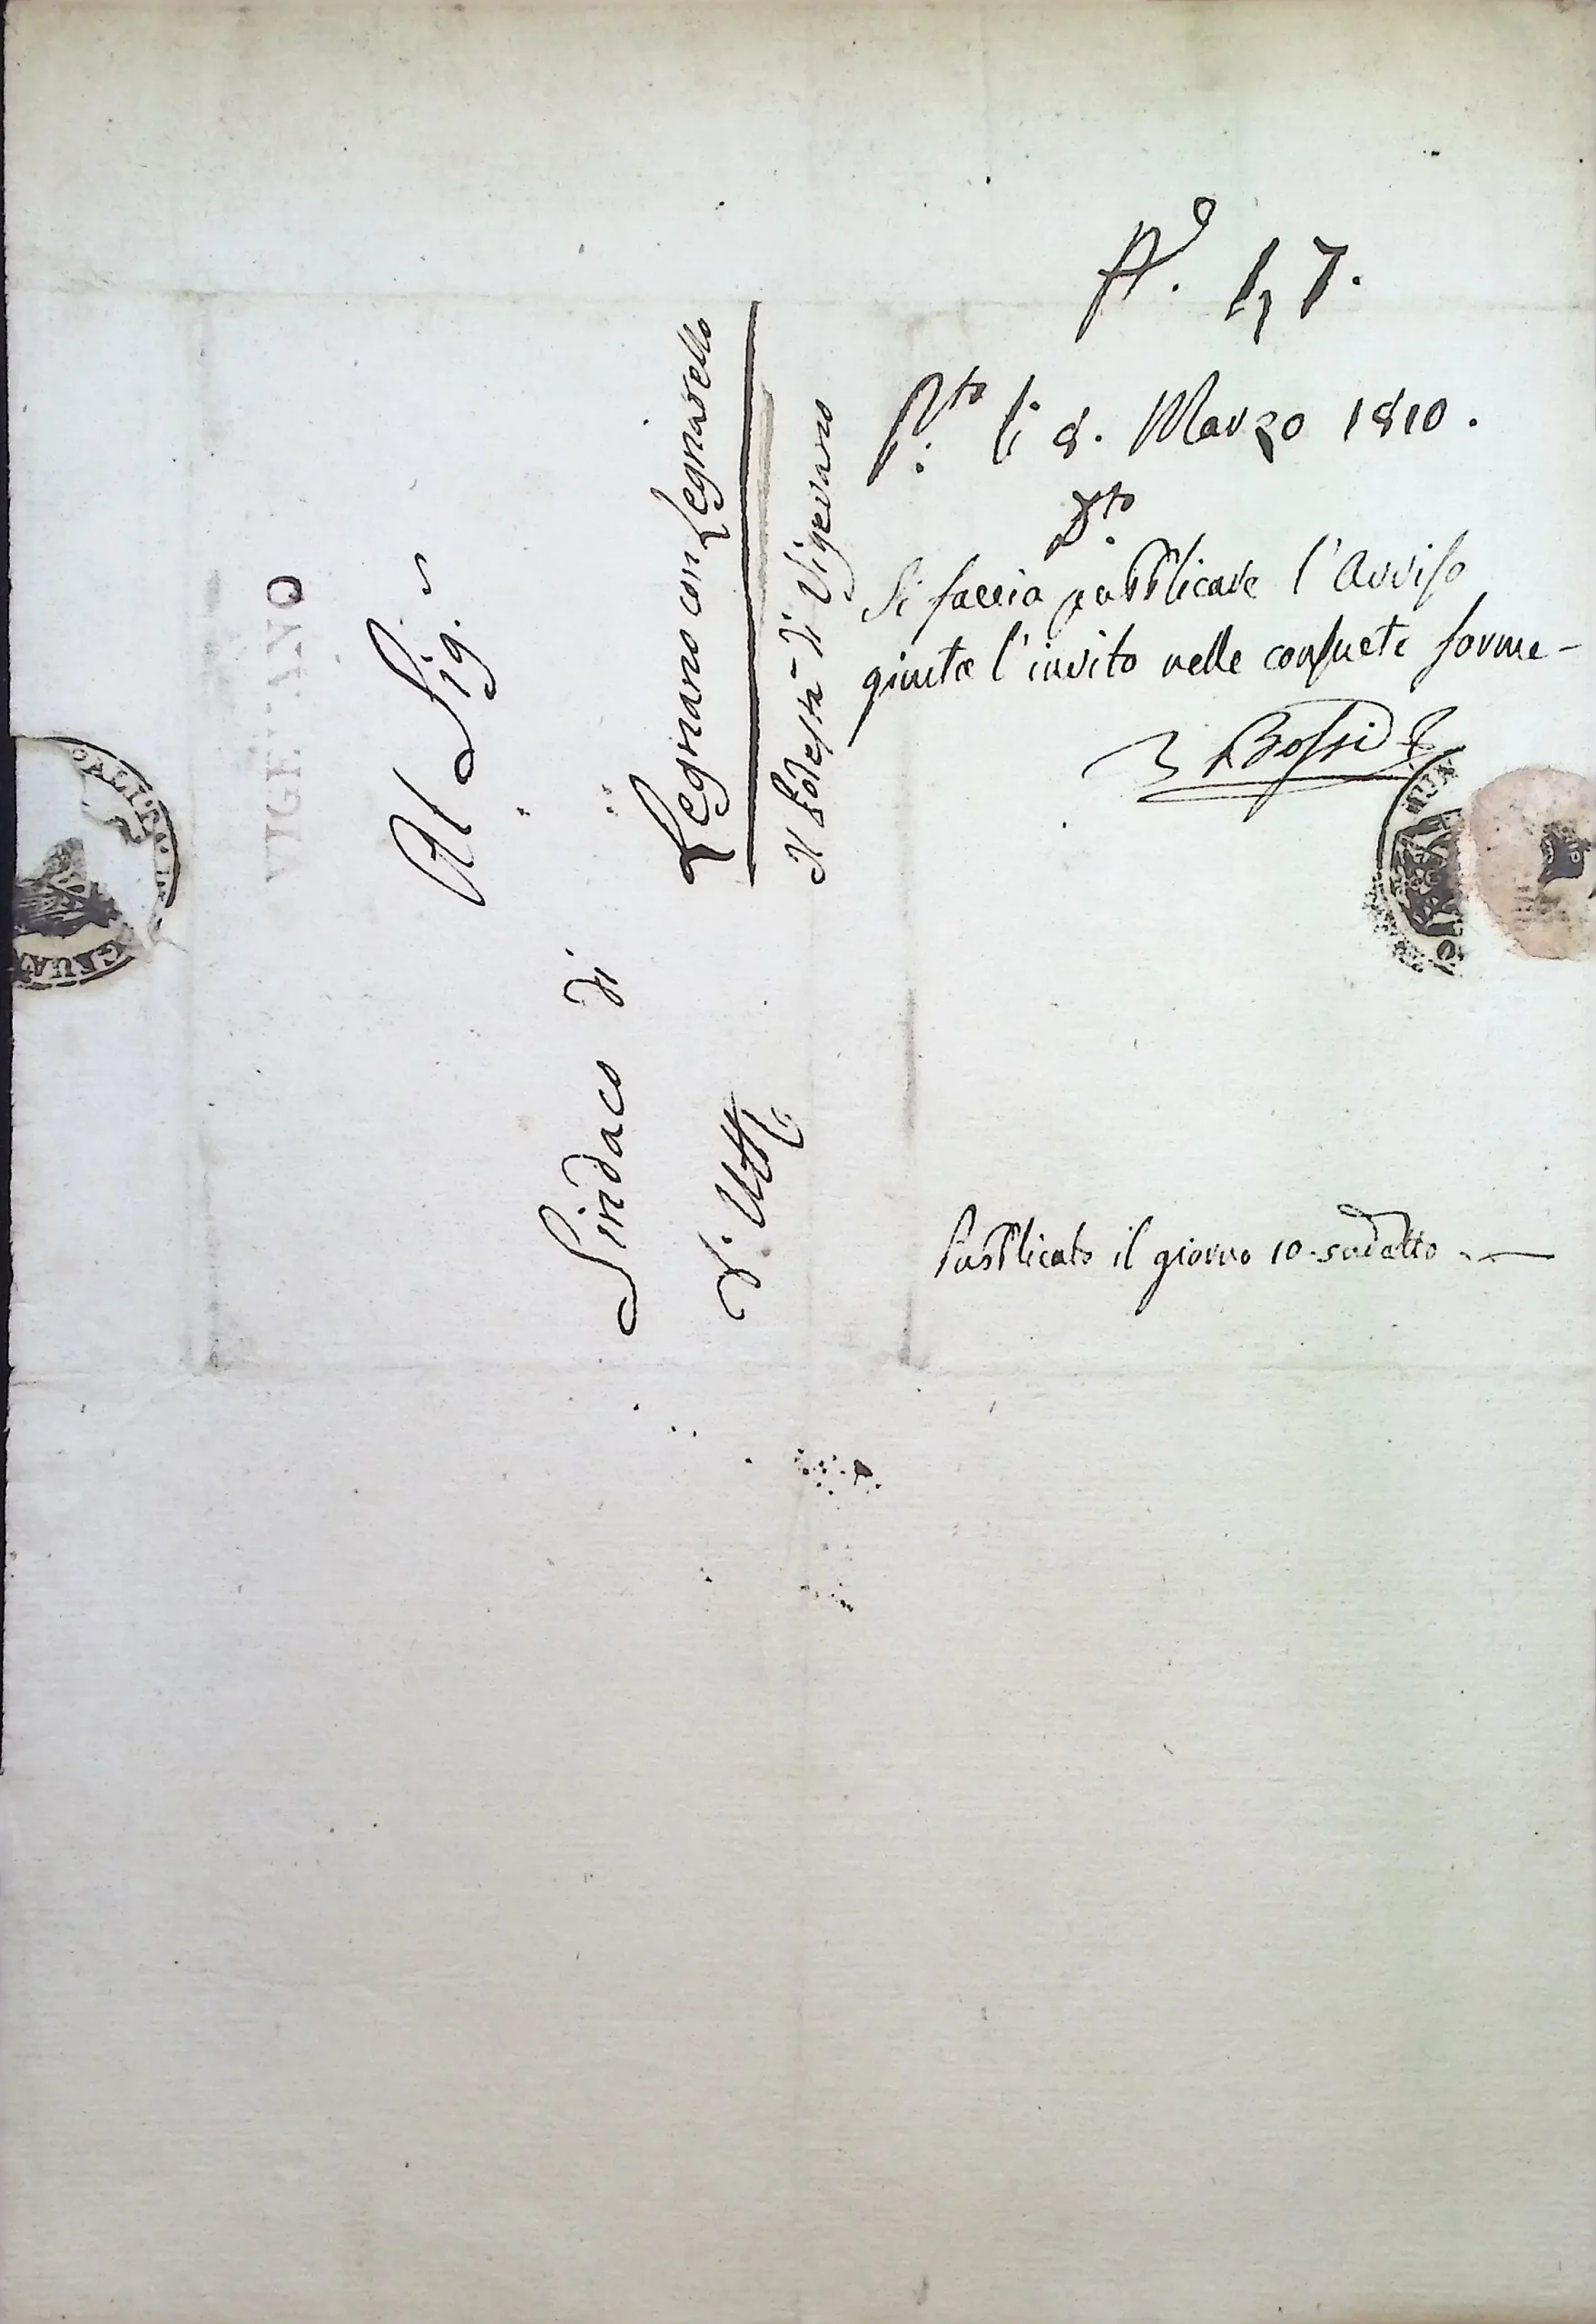 N.º 147.
P.to li 8. Marzo 1810.
D.to
Si faccia pubblicare l'Avviso
giusta l'invito nelle consuete forme –
Bossi
Pubblicato il giorno 10. sud.atto. —
VIGEVANO
Al Sig.r
Sindaco di
Legnano con Legnarello
D'. Uff
Il Podestà di Vigevano